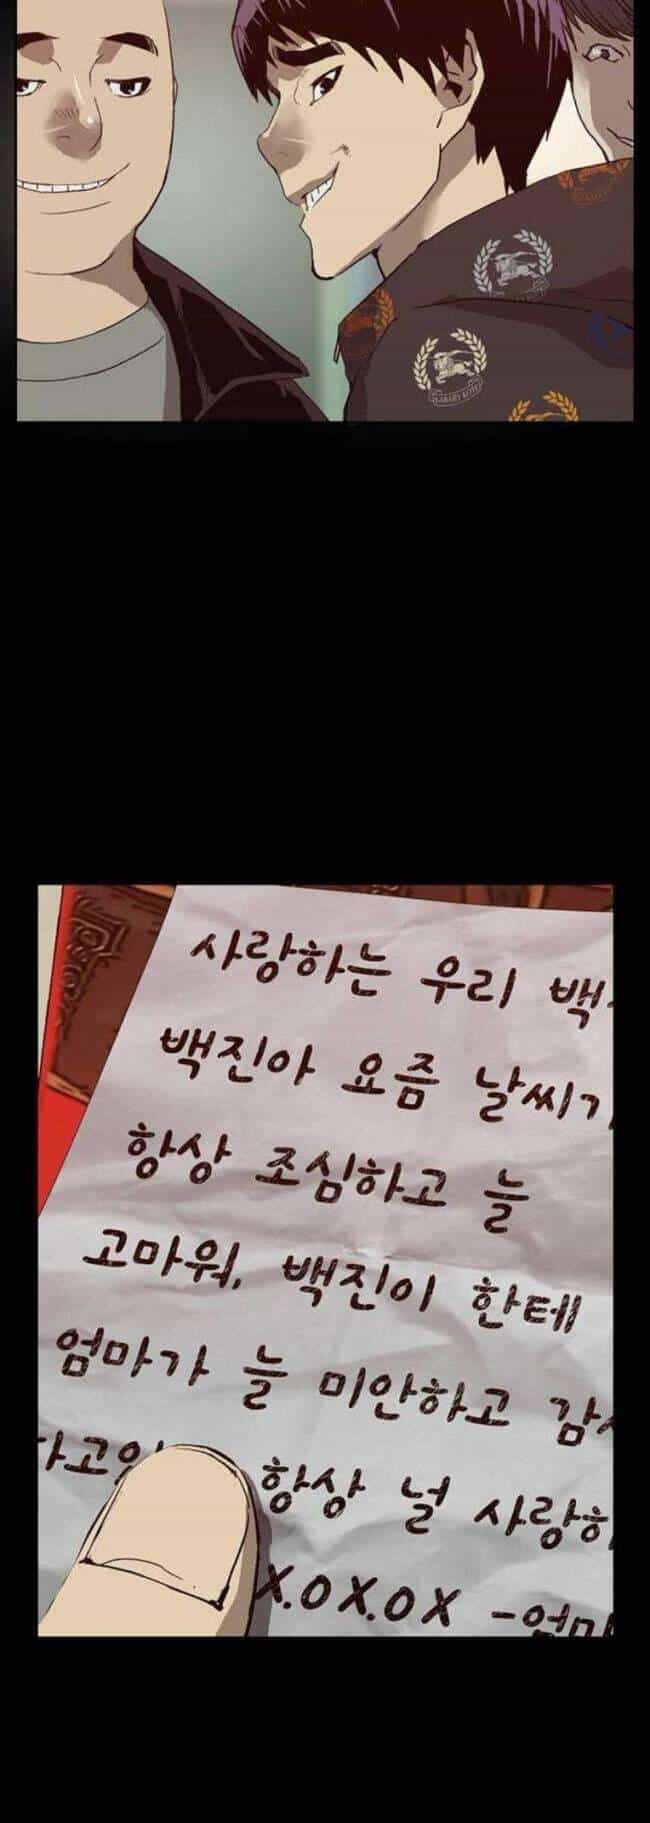 사랑하는 우리 백
백진아 요즘 날씨가
항상 조심하고 늘
고마워, 백진이 한테
엄마가 늘 미안하고 감
항상 널 사랑하
X.O X.O X -엄마